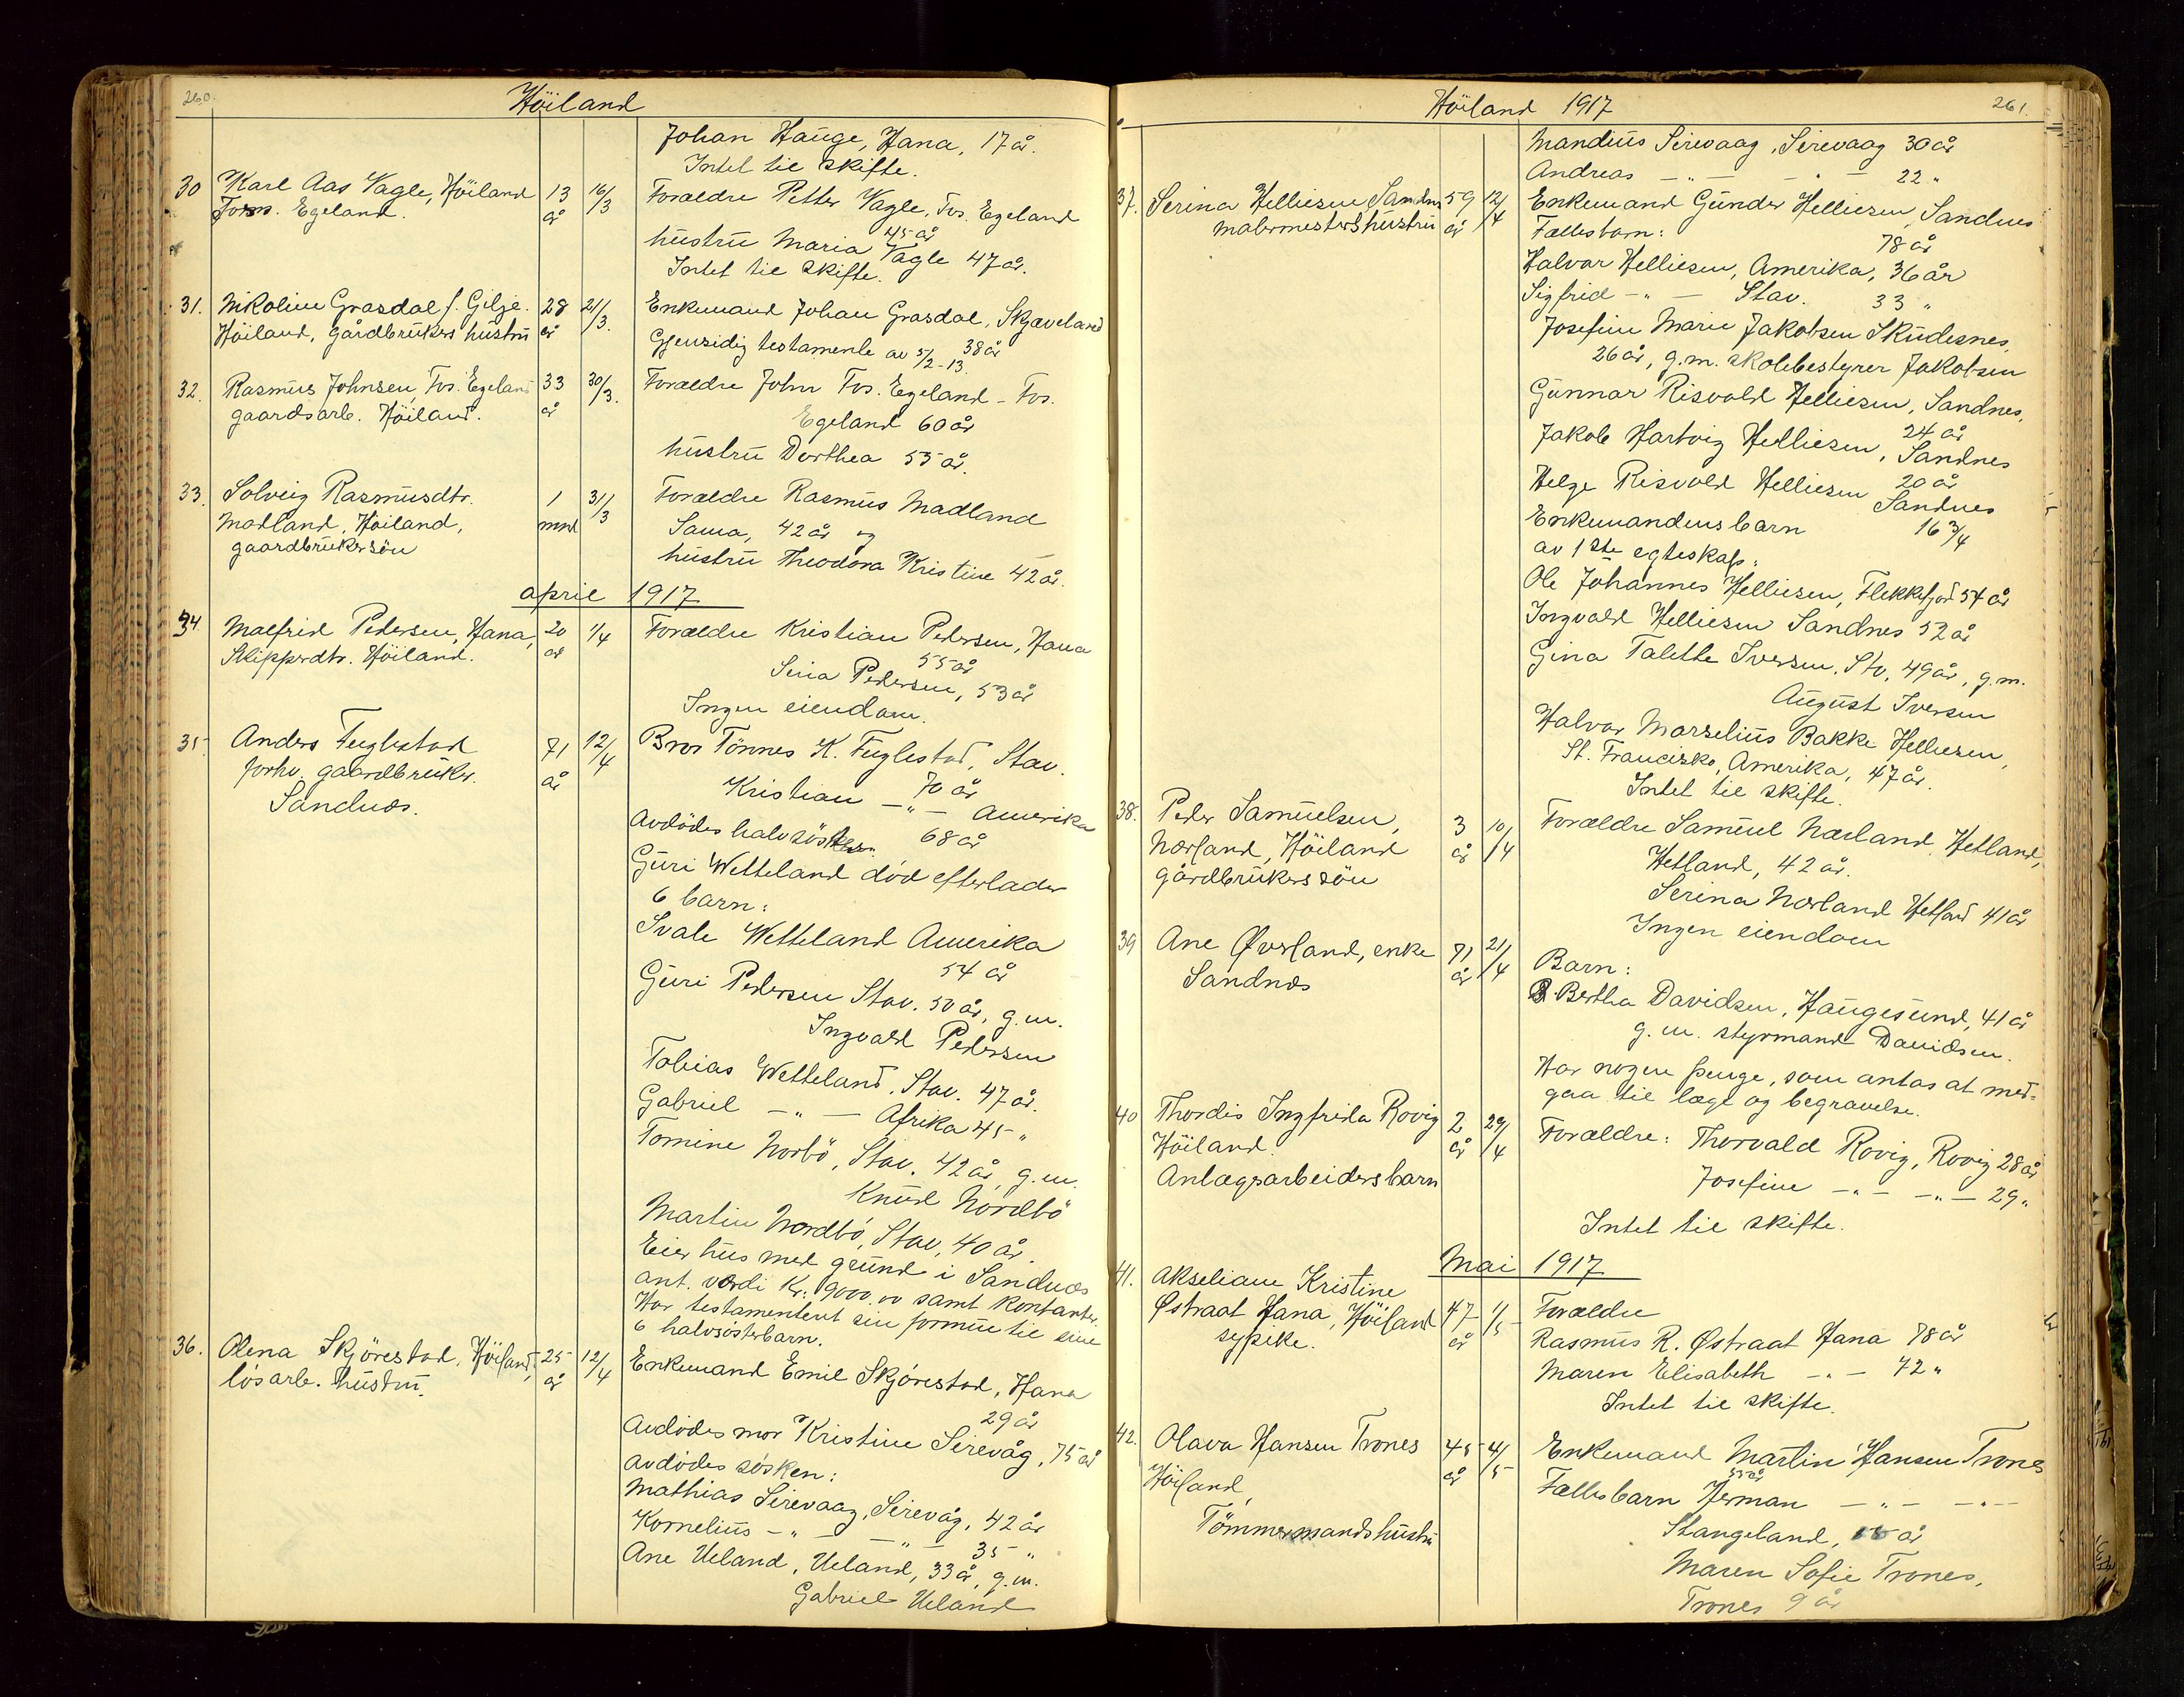 260.
Höiland
Johan Hauge, Hana, 17 år.
Intet til skifte.
30 Karl Aas Vagle, Höiland 13 16/3 Forældre Petter Vagle, Fos. Egeland
Foss. Egeland. år 45 år
hustru Maria Vagle 47 år.
Intet til skifte.
31. Nikoline Grasdal f. Gilje. 28 21/3. Enkemand Johan Grasdal, Skjæveland
Höiland, gårdbrukers hustru år 38 år
Gjensidig testamente av 5/2-13.
32. Rasmus Johnsen, Fos. Egeland 33 30/3. Forældre John Fos. Egeland - Fos.
gaardsarb. Höiland. år Egeland 60 år
hustru Dorthea 55 år.
33. Solveig Rasmusdtr. 1 31/3 Forældre Rasmus Madland
Madland, Höiland, mnd Sama, 42 år og
gaardbrukersön hustru Theodora Kristine 42 år.
april 1917
34. Malfrid Pedersen, Hana, 20 1/4 Forældre Kristian Pedersen, Hana
Skipperdtr. Höiland. år 55 år
Sina Pedersen, 53 år
Ingen eiendom.
35 Anders Fuglestad 71 12/4 Bror Tönnes K. Fuglestad, Stav.
forhv. gaardbruker. år 70 år
Sandnæs. Kristian -"- Amerika
68 år
Avdödes halvsöster.
Guri Wetteland död efterlader
6 barn:
Svale Wetteland Amerika
54 år
Guri Pedersen Stav. 50 år, g.m.
Ingvald Pedersen
Tobias Wetteland, Stav. 47 år.
Gabriel -"- Afrika 45 "
Tomine Norbö, Stav. 42 år, g.m.
Knud Nordbö
Martin Nordbö, Stav, 40 år.
Eier hus med grund i Sandnæs
ant. værdi Kr. 9000.00 samt kontanter.
Har testamentert sin formue til sine
6 halvsösterbarn.
36. Olena Skjörestad, Höiland, 25 12/4 Enkemand Emil Skjörestad, Hana
lösarb. hustru. år 29 år
Avdödes mor Kristine Sirevåg, 75 år
avdödes sösken:
Mathias Sirevaag, Sirevåg, 42 år
Kornelius -"- -"- 35 "
Ane Ueland, Ueland, 33 år, g.m.
Gabriel Ueland
Höiland 1917
261.
Mandius Sirevaag, Sirevaag 30 år
Andreas -"- -"- 22 "
37. Serina Helliesen Sandnes 59 12/4 Enkemand Gunder Helliesen, Sandnes
malermesters hustru år 78 år
Fællesbarn:
Halvar Helliesen, Amerika, 36 år
Sigfrid -"- Stav. 33 "
Josefine Marie Jakobsen Skudesnes,
26 år, g.m. skolebestyrer Jakobsen
Gunnar Risvold Helliesen, Sandnes,
24 år
Jakob Hartvig Helliesen, Sandnes
20 år
Helge Risvold Helliesen Sandnes
16 3/4
Enkemandens barn
av 1ste egteskap:
Ole Johannes Helliesen, Flekkefjord 54 år
Ingvald Helliesen Sandnes 52 år
Gina Talette Iversen, Stv. 49 år, g.m.
August Iversen
Halvar Marselius Bakke Helliesen,
St. Francisko, Amerika, 47 år.
Intet til skifte.
38. Peder Samuelsen, 3 10/4 Forældre Samuel Nærland, Hetland,
Nærland, Höiland år Hetland, 42 år.
gårdbrukers sön Serina Nærland Hetland 41 år
Ingen eiendom
39 Ane Øverland, enke 71 21/4 Barn:
Sandnæs år Bertha Davidsen, Haugesund, 41 år
g.m. styrmand Davidsen.
Har nogen penge, som antas at med-
gaa til læge og begravelse.
40 Thordis Ingfrida Rovig 2 29/4 Forældre: Thorvald Rovig, Rovig 28 år
Höiland. år Josefine -"- -"- 29 "
Anlægsarbeidersbarn
Intet til skifte.
Mai 1917
41. Akseliane Kristine
Østraat Hana, Höiland 47 1/5 Forældre
sypike. år Rasmus R. Østraat Hana 78 år
Maren Elisabeth -"- 72 "
Intet til skifte.
42. Olava Hansen Trones 45 4/5 Enkemand Martin Hansen Trones
Höiland, år 55 år
Tömmermandshustru Fællesbarn Herman -"- -"-
Stangeland, år
Maren Sofie Trones,
Trones 9 år